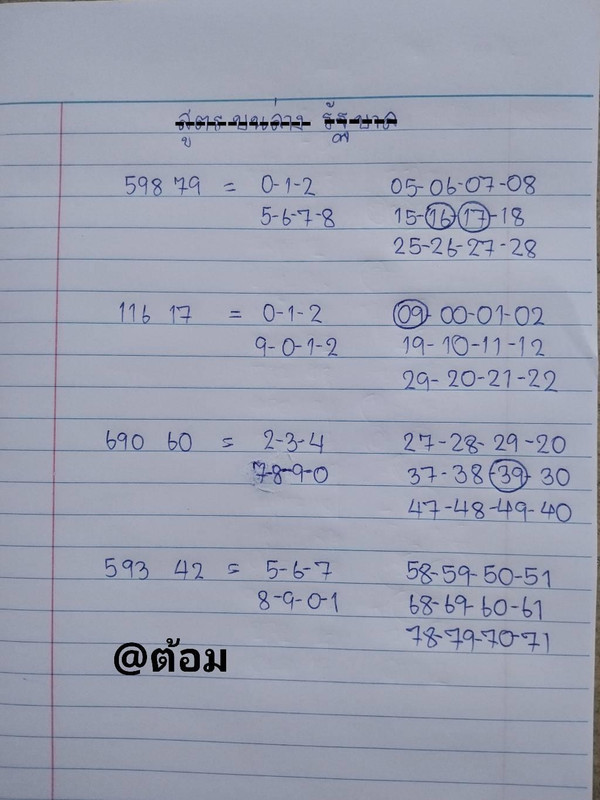 สูตร บนล่าง รัฐบาล
598 79 = 0-1-2 05-06-07-08
5-6-7-8 15-16-17-18
25-26-27-28
116 17 = 0-1-2 09-00-01-02
9-0-1-2 19-10-11-12
29-20-21-22
690 60 = 2-3-4 27-28-29-20
7-8-9-0 37-38-39-30
47-48-49-40
593 42 = 5-6-7 58-59-50-51
8-9-0-1 68-69-60-61
78-79-70-71
@ต้อม